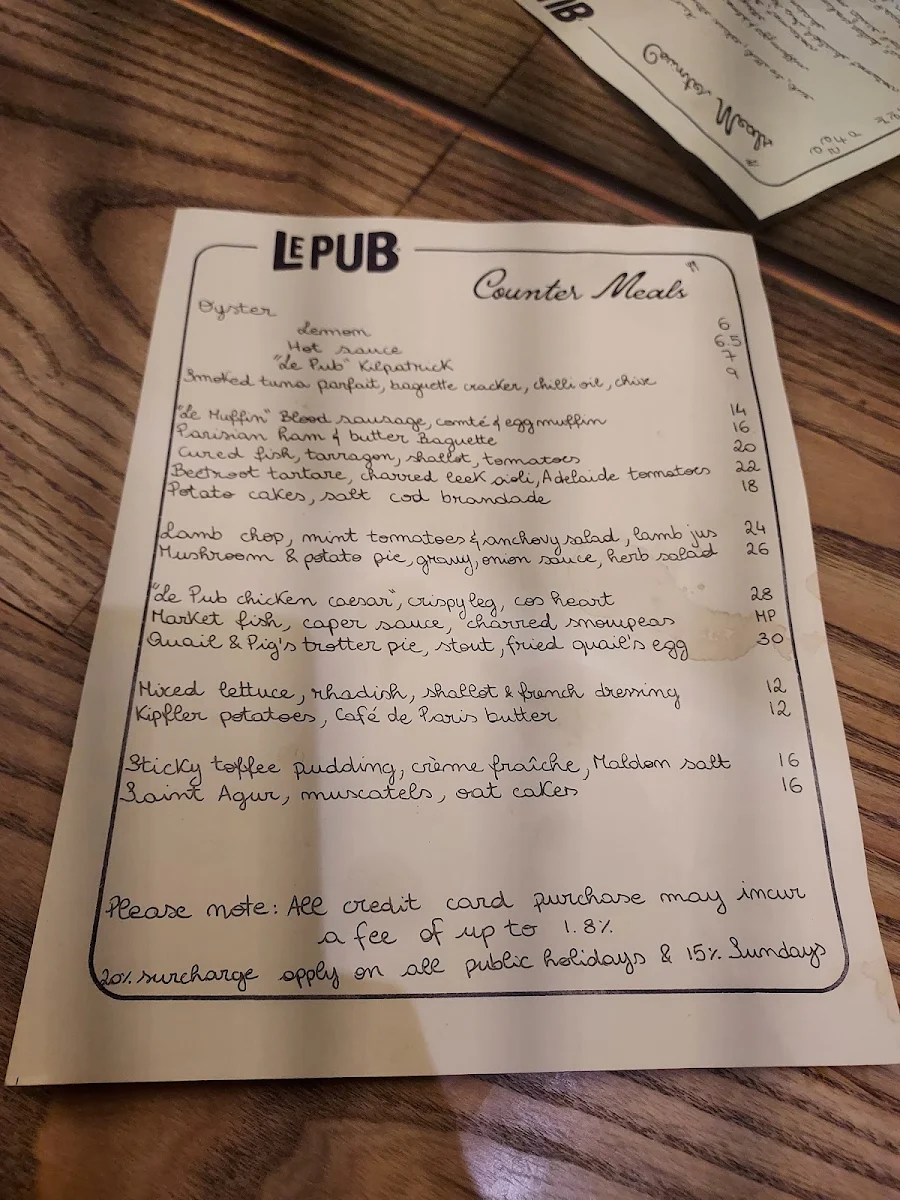 LE PUB
Counter Meals
Oyster
Lemon 6
Hot sauce 6.5
"Le Pub" Kilpatrick 7
Smoked tuna parfait, baguette cracker, chilli oil, chive 9
"Le Muffin" Blood sausage, comté & egg muffin 14
Parisian ham & butter Baguette 16
Cured fish, tarragon, shallot, tomatoes 20
Beetroot tartare, charred leek aioli, Adelaide tomatoes 22
Potato cakes, salt cod brandade 18
Lamb chop, mint tomatoes & anchovy salad, lamb jus 24
Mushroom & potato pie, gravy, onion sauce, herb salad 26
"Le Pub chicken caesar", crispy leg, cos heart 28
Market fish, caper sauce, charred snowpeas MP
Quail & Pig's trotter pie, stout, fried quail's egg 30
Mixed lettuce, rhadish, shallot & french dressing 12
Kipfler potatoes, Café de Paris butter 12
Sticky toffee pudding, crème fraîche, Maldon salt 16
Saint Agur, muscatels, oat cakes 16
Please note: All credit card purchase may incur
a fee of up to 1.8%
20% surcharge apply on all public holidays & 15% Sundays
Counter Meals